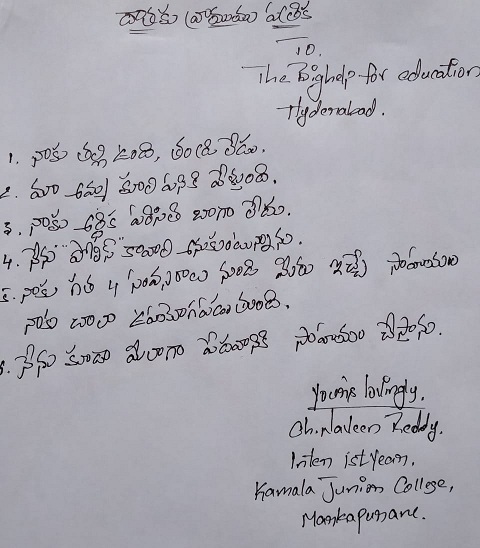 దాతకు వ్రాయుట పత్రిక
To.
The Bighelp for education
Hyderabad.
1. నాకు తల్లి ఉంది, తండ్రి లేడు.
2. మా అమ్మ కూలి పనికి వెళ్తుంది.
3. నాకు ఆర్థిక పరిసతి బాగా లేదు.
4. నేను "పోలీస్" కావాలి అనుకుంటున్నాను.
5. నాకు గత 4 సంవత్సరాలు నుండి మీరు ఇచ్చే సాహాయం
నాకు చాలా ఉపయోగపడుతుంది.
6. నేను కూడా మీలాగా పేదవానికి సాహాయం చేస్తాను.
yours lovingly.
Ch. Naveen Reddy.
Inter 1st year.
Kamala Junior College,
Markapuram.